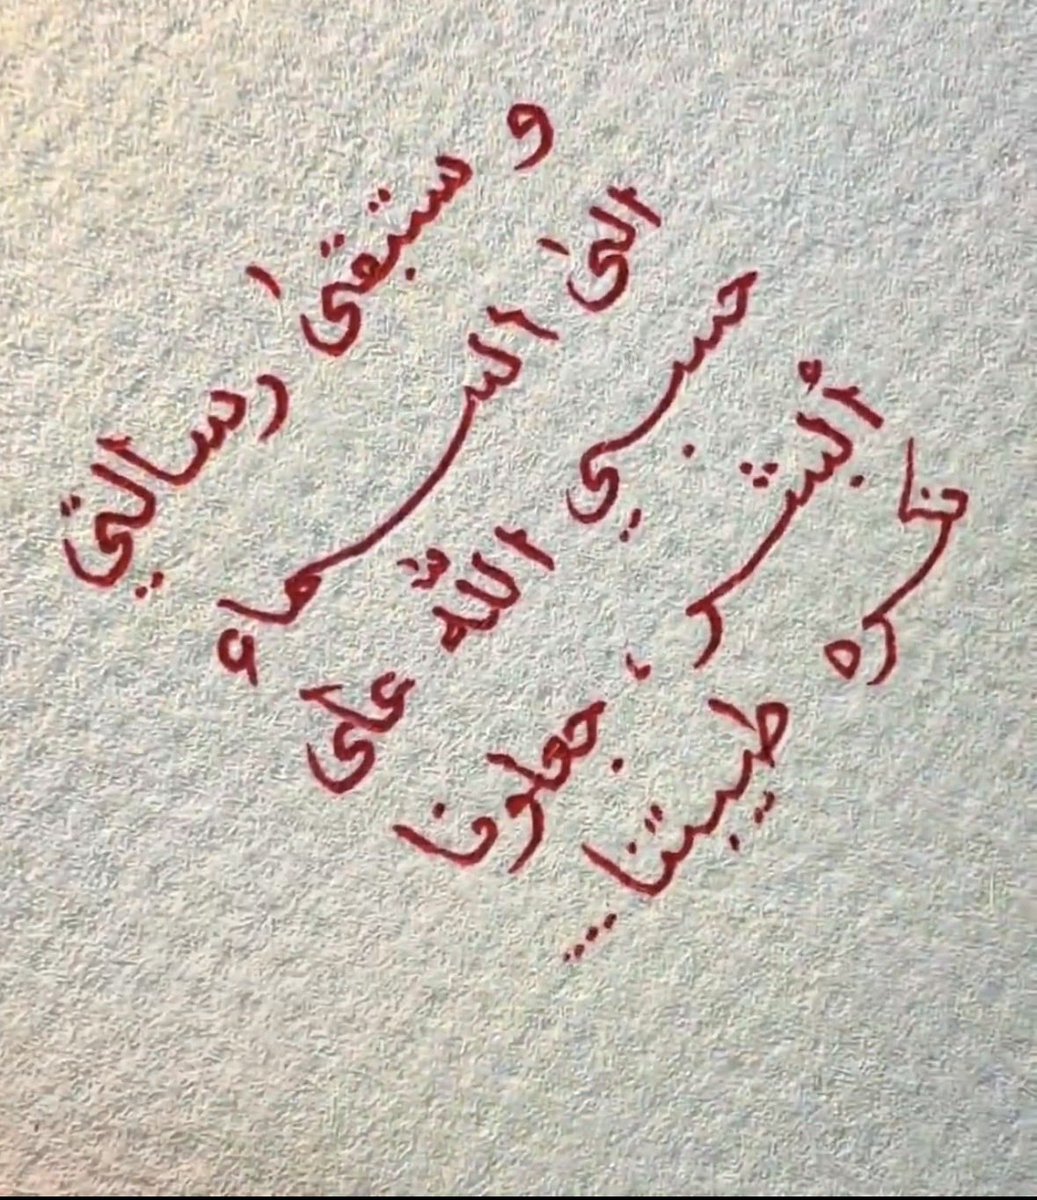 و ستبقىٰ رسالتي
الىٰ السماء
حسبي اللّٰه على
البشر، جعلونا
نكره طيبتنا...